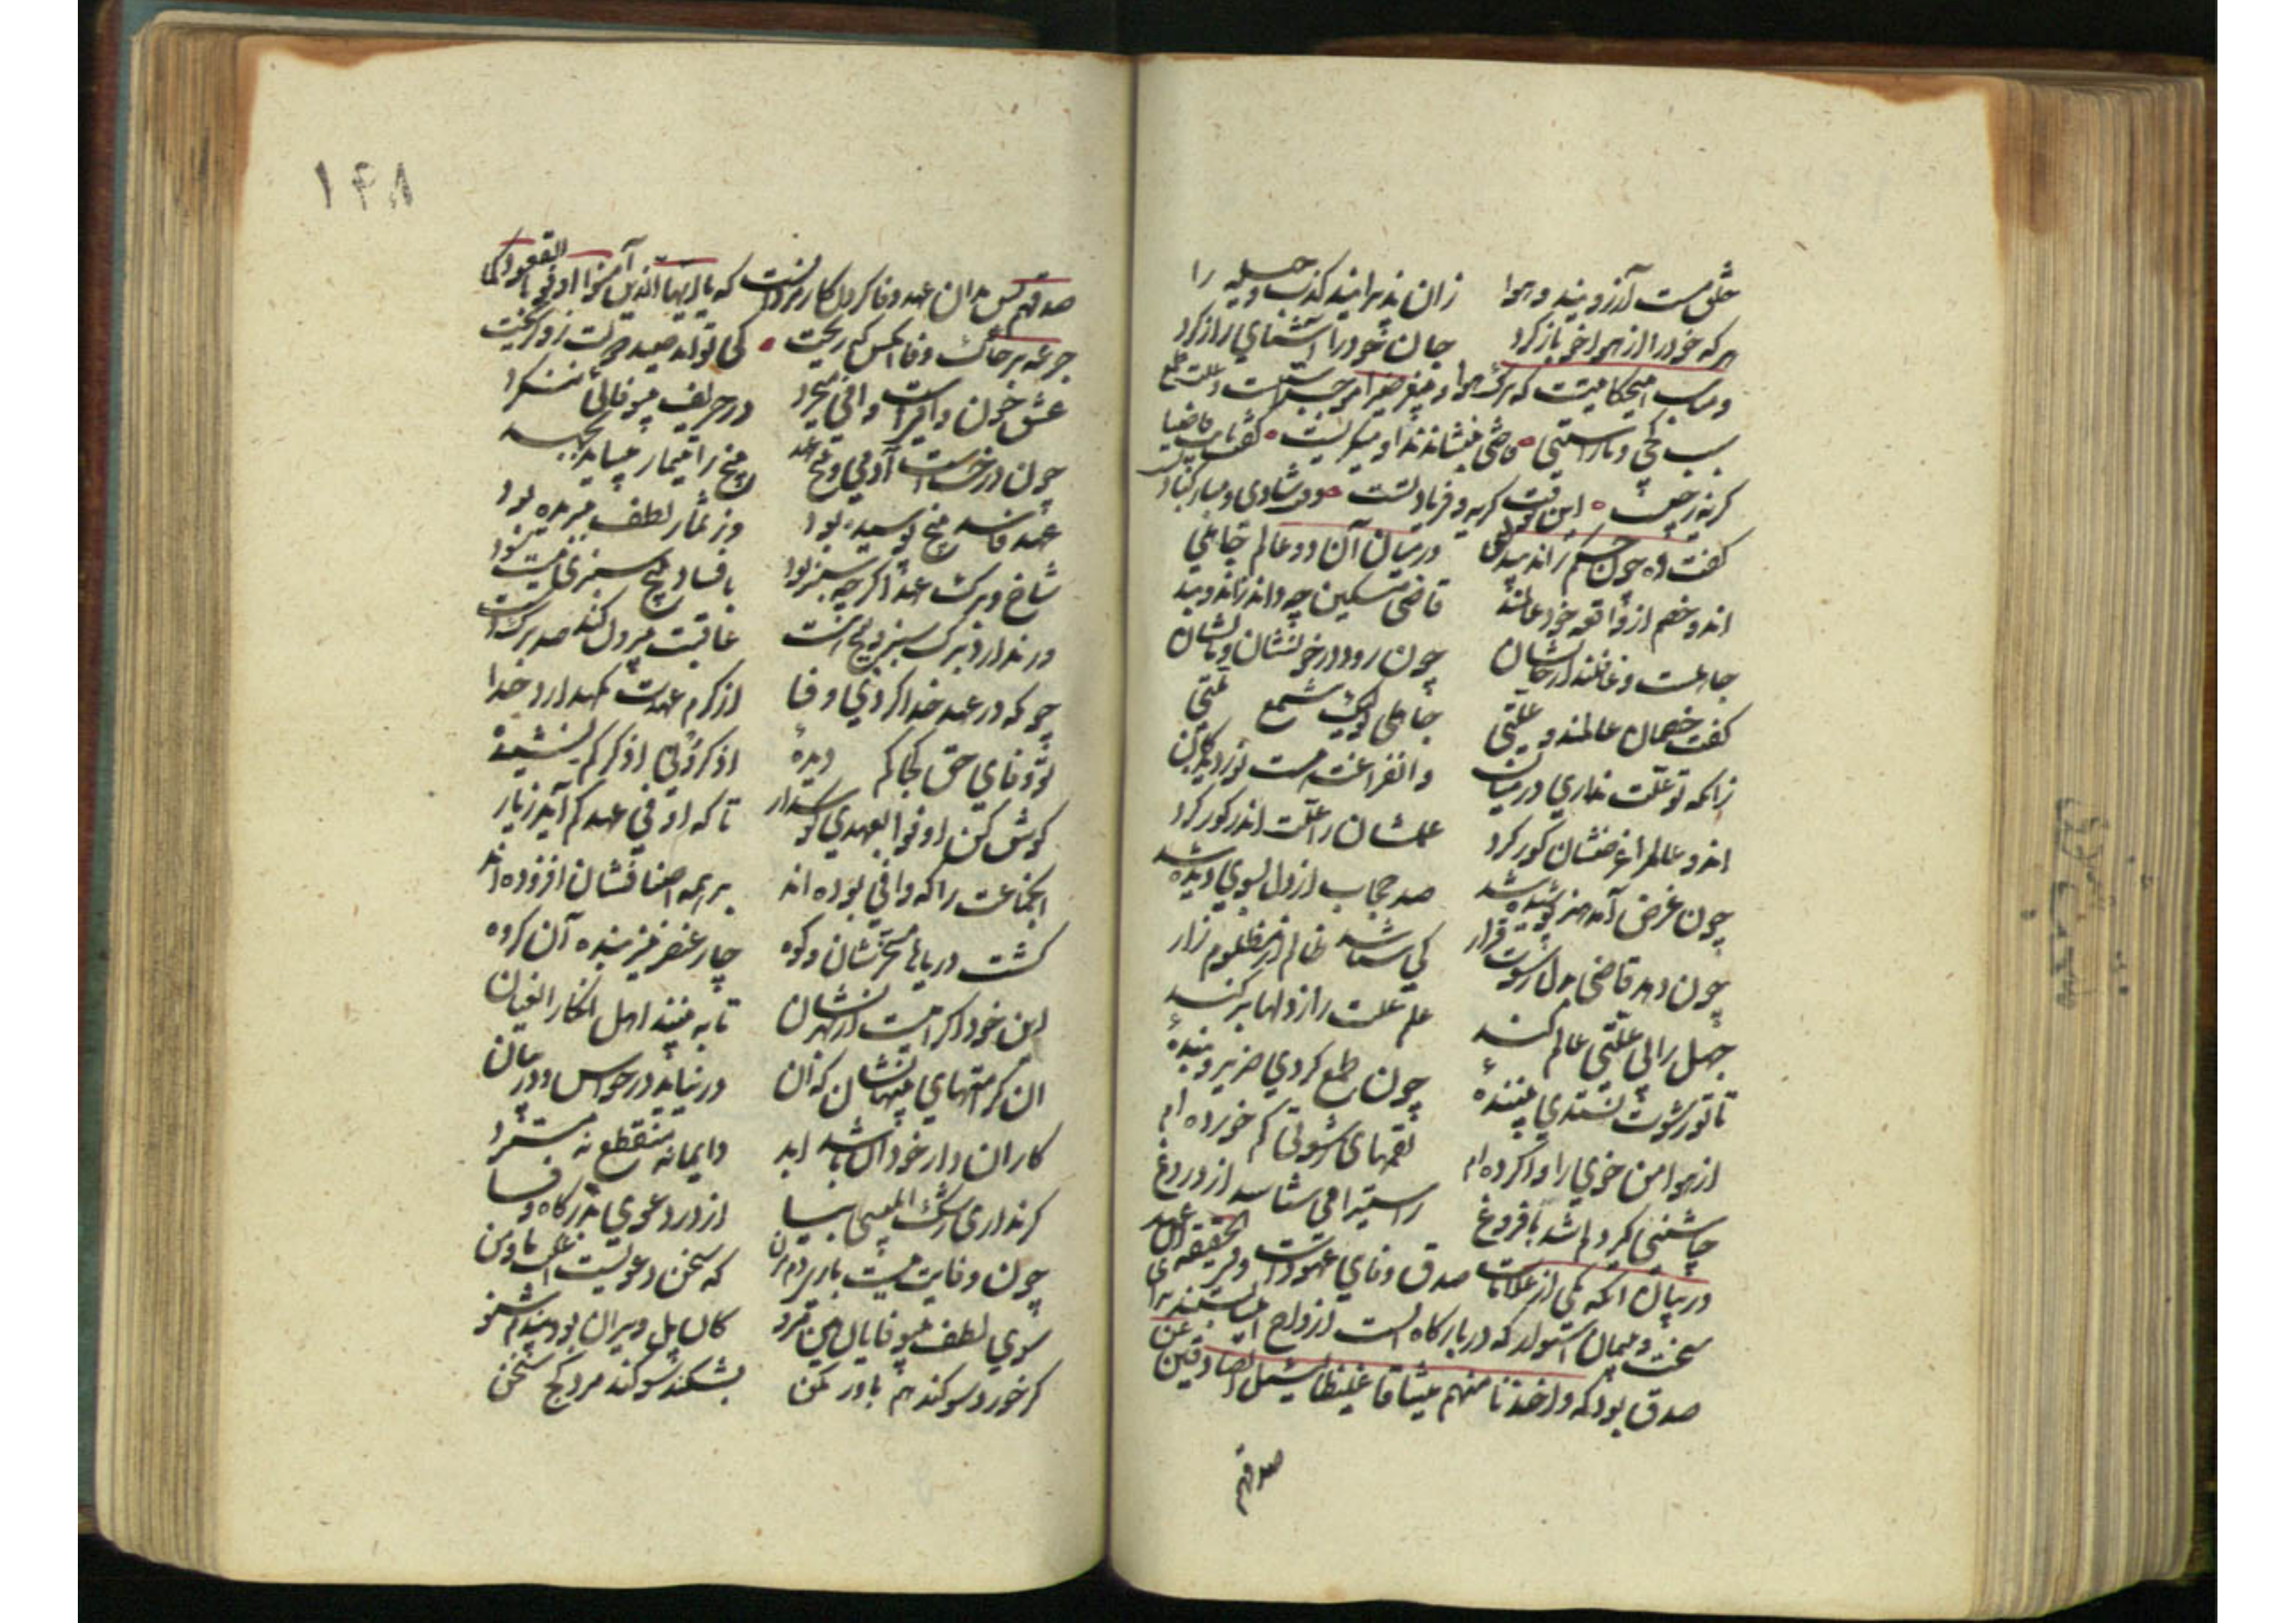 خلق مست آرزویند و هوا زان پذیرایند کذب و حیله را
هر که خود را از هوا خو باز کرد جان خود را آشنای راز کرد
و مناسب اینحکایتست که ترک هوا و
سبب کجی و ناراستی قاضی بنشاندند او میگریست گفت نایب قاضیا
گریه ز چیست این نه وقت گریه و فریاد تست وقت شادی و مبارکباد تست
گفت اه چون حکم راند بیدلی در میان آن دو عالم جاهلی
اندو خصم از واقعه خود عالمند قاضی مسکین چه داند زاندو بند
جاهلست و غافلست از حالشان چون رود در خونشان و مالشان
گفت خصمان عالمند و علتی جاهلی تو لیک شمع ملتی
زانکه تو علت نداری در میان وان فراغت هست نور دیدگان
اندو عالم را غرضشان کور کرد علمشان را علت اندر گور کرد
چون غرض آمد هنر پوشیده شد صد حجاب از دل بسوی دیده شد
چون دهد قاضی بدل رشوت قرار کی شناسد ظالم از مظلوم زار
جهل را بی علتی عالم کند علم علت را ز دلها بر کند
تا تو رشوت نستدی بیننده چون طمع کردی ضریر و بنده
از هوا من خوی را وا کرده ام لقمهای شهوتی کم خورده ام
چاشنی گیر دلم شد با فروغ راست را می شناسد از دروغ
در بیان آنکه یکی از علامات صدق وفای عهود است و فی الحقیقه آن عهد
سخت و پیمان استوار که در بارگاه الست ازواح
صدق بود که و اخذنا منهم میثاقا غلیظا لیسئل الصادقین عن
صدقهم
۱۴۸
صدقهم پس بدان عهد وفا کردن کار مردانست که یا ایها الذین آمنوا اوفوا بالعقود
جرعه بر خاک وفا آنکس که ریخت کی تواند صید دولت زو گریخت
عشق چون وافی است وافی میخرد در حریف بیوفا می ننگرد
چون درخت است آدمی و بیخ عهد بیخ را تیمار میباید بجهد
عهد فاسد بیخ پوسیده بود وز ثمار لطف ببریده بود
شاخ و برگ عهد اگر چه سبز بود با فساد بیخ سبزی نیست سود
ور ندارد برگ سبز و بیخ هست عاقبت بیرون کند صد برگ دست
چونکه در عهد خدا کردی وفا از کرم عهدت نگهدارد خدا
تو وفای حق کجا کم دیده اذکرونی اذکرکم نشنیده
گوش کن اوفوا بعهدی گوش دار تا که اوفی عهدکم آید ز یار
انجماعت را که وافی بوده اند بر همه اصنافشان افزوده اند
گشت دریاها مسخرشان و کوه چار عنصر نیز بنده آن گروه
این خود اکرامیست از بهر نشان تا به بینند اهل انکار العیان
ان کرامتهای پنهانشان که آن در نیاید در حواس و در بیان
کار ان دارد خود آن باشد ابد دایما نه منقطع نه مسترد
گر نداری رشک ابلیسی بیا از در دعوی بدرگاه وفا
چون وفایت نیست باری دم مزن که سخن دعویست اغلب ما و من
سوی لطف بیوفایان هین مرو کان پل ویران بود نیکو شنو
گر خورد سوگند هم باور مکن بشکند سوگند مرد کج سخن